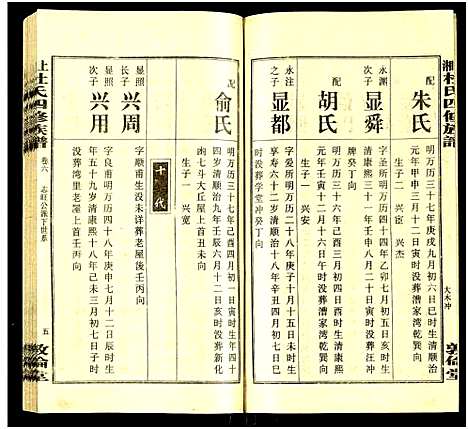 湘杜氏四修族譜
大木冲
敦倫堂
配
朱氏
明万历三十八年庚戌九月初六日巳时生清顺治
元年甲申三月十二日寅时没葬漕家湾乾巽向
生子二 兴宦 兴杰
永渊
次子
显舜
字圣所明万历四十年乙卯七月初四日子时
生清康熙三十一年壬申八月二十日辰时没葬汪冲
牌癸丁向
配
胡氏
明万历三十七年己酉三月初四日寅时生清康熙
元年壬寅十二月十六日午时没葬漕家湾乾巽向
生子一 兴安
永注
次子
显都
字学所明万历二十八年庚子十月十八日未时生
清康熙
时没葬学堂冲癸丁向
配
俞氏
明万历三十七年己酉四月初一日寅时生年四十
四岁清顺治十八年辛丑四月初三日亥时没葬新化
拘七斗大丘屋上首丑未向
生子一 兴宽
十 代
显照
长子
兴周
字顺甫生没未详葬老屋後壬丙向
显照
次子
兴用
字良甫明万历四十八年六月十二日辰时生
年五十九岁清康熙十八年己未三月初七日子时
没葬湾里老屋上首壬丙向
上杜氏四修族譜
卷六
志旺公派下世系
五
敦倫堂